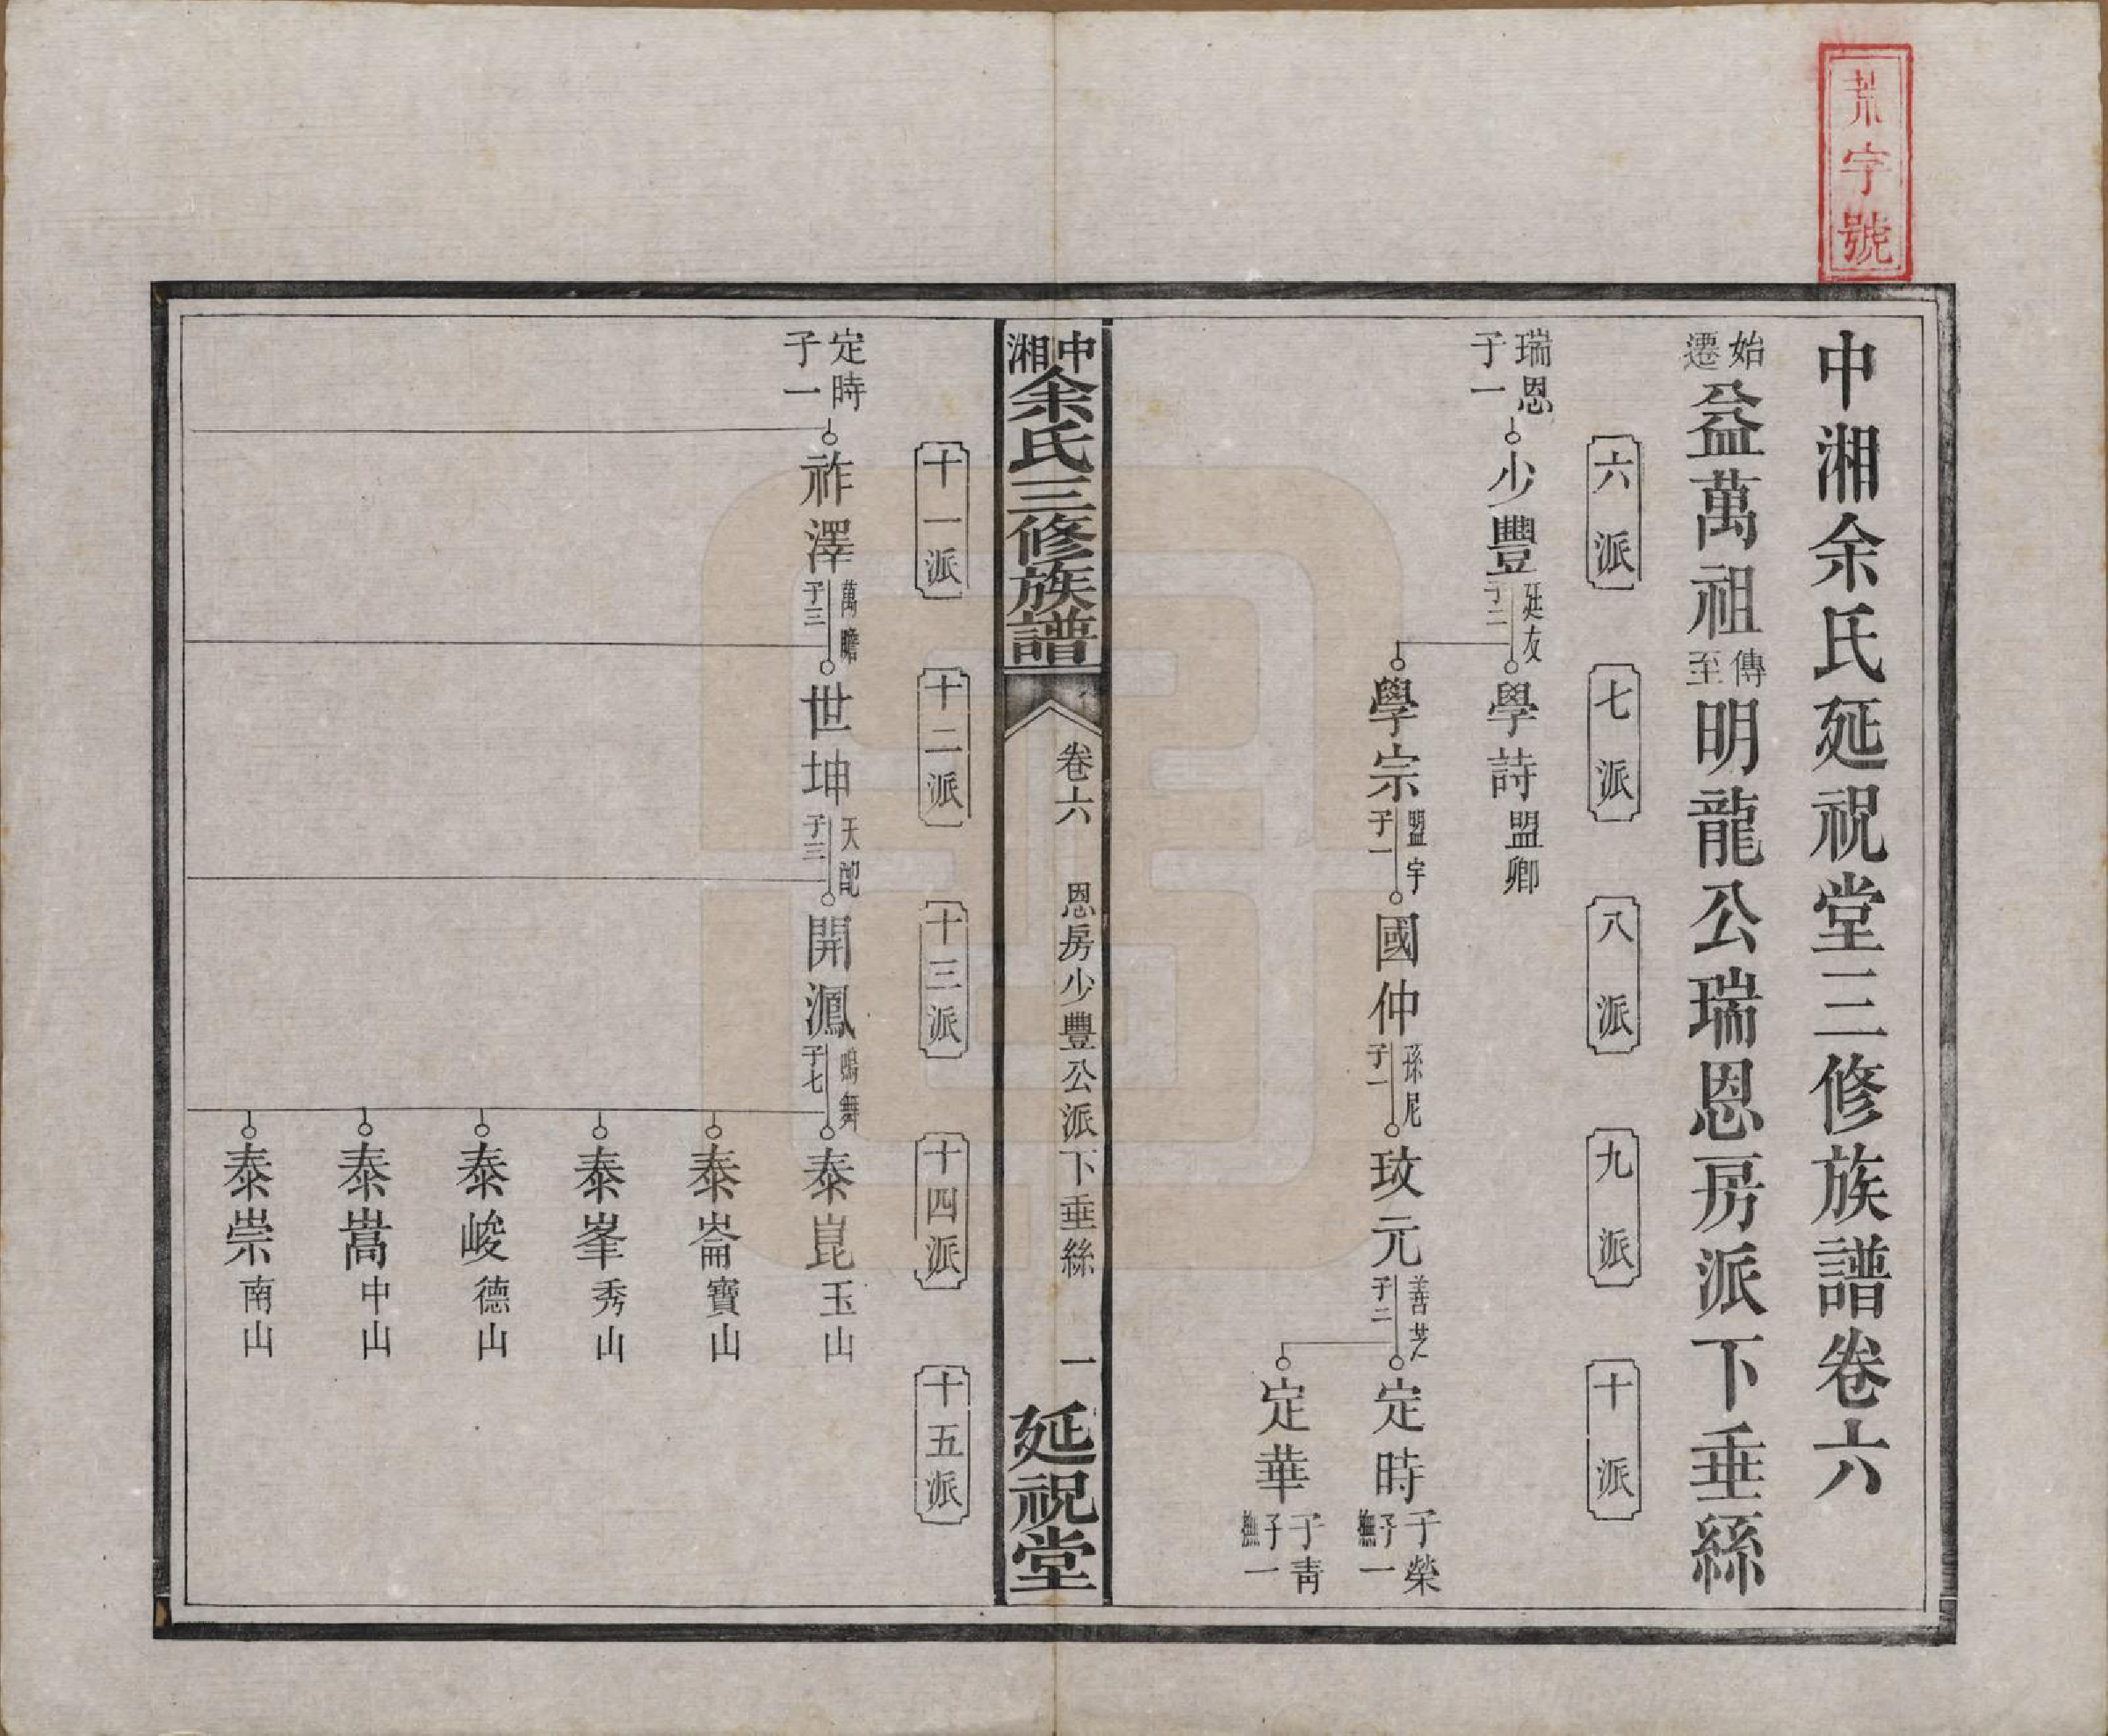 荒字號
中湘余氏延祝堂三修族譜卷六
始遷益萬祖傳至明龍公瑞恩房派下垂絲
六派
七派
八派
九派
十派
瑞恩子一
少豐 廷友 子二
學詩 盟卿
學宗 盟宇 子一
國仲 孫尼 子一
玟元 善芝 子二
定時 于榮 撫子一
定華 于青 撫子一
中湘余氏三修族譜
卷六
恩房少豐公派下垂絲
一
延祝堂
十一派
十二派
十三派
十四派
十五派
定時子一
祚澤 萬瞻 子三
世坤 天配 子三
開鳳 鳴舞 子七
泰崑 玉山
泰崙 寶山
泰峯 秀山
泰峻 德山
泰嵩 中山
泰崇 南山